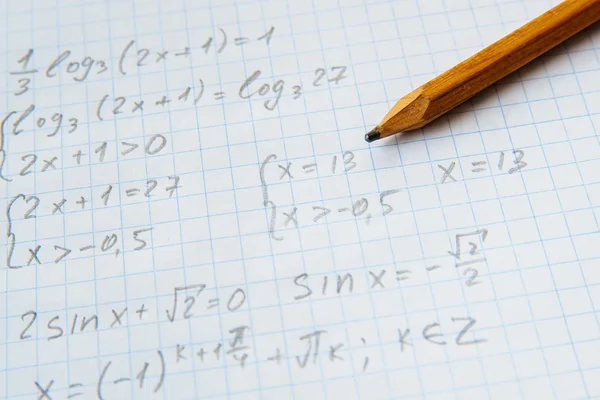 1/3 log₃ (2x+1) = 1
{ log₃ (2x+1) = log₃ 27
2x+1>0
{ 2x+1=27
x>-0,5
{ x=13
x>-0,5
x=13
2 sin x + √2 = 0
sin x = - √2/2
x = (-1)^(k+1) π/4 + πk; k∈Z